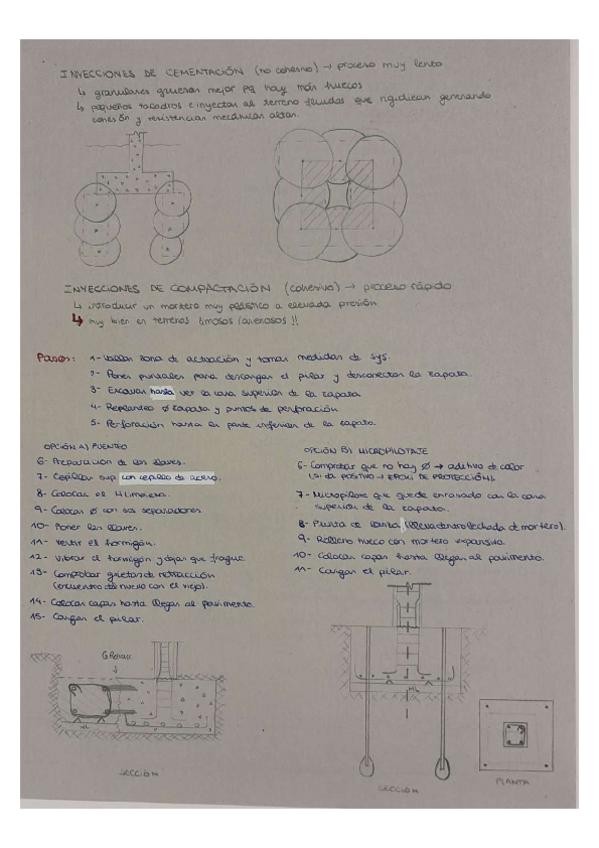 INYECCIONES DE CEMENTACIÓN (no cohesivo) → proceso muy lento
↳ granulares mejor pq hay más huecos
↳ pequeños taladros e inyectar al terreno fluidos que rigidizan generando
cohesión y resistencias mecánicas altas.
INYECCIONES DE COMPACTACIÓN (cohesivo) → proceso rápido
↳ introducir un mortero muy plástico a elevada presión
↳ muy bien en terrenos limosos/arenosos !!
Pasos: 1- Vallar zona de actuación y tomar medidas de sys.
2- Poner puntales para descargar el pilar y desconectar la zapata.
3- Excavar hasta ver la cara superior de la zapata
4- Replanteo Ø zapata y puntos de perforación
5- Perforación hasta la parte inferior de la zapata.
OPCIÓN A) PUENTEO
6- Preparación de las llaves.
7- Cepillar sup con cepillo de acero.
8- Colocar el H limpieza.
9- Colocar Ø con sus separadores.
10- Poner las llaves.
11- Vertir el hormigón.
12- Vibrar el hormigón y dejar que fragüe
13- Comprobar grietas de retracción
(encuentro de nuevo con el viejo).
14- Colocar capas hasta llegar al pavimento.
15- Cargar el pilar.
OPCIÓN B) MICROPILOTAJE
6- Comprobar que no hay Ø → aditivo de color
(si da positivo → EPOXI DE PROTECCIÓN).
7- Micropilote que quede enrasado con la cara
superior de la zapata.
8- Punta de lanza (lleva dentro lechada de mortero).
9- Relleno hueco con mortero expansivo
10- Colocar capas hasta llegar al pavimento.
11- Cargar el pilar.
HL
HL
SECCIÓN
SECCIÓN
PLANTA